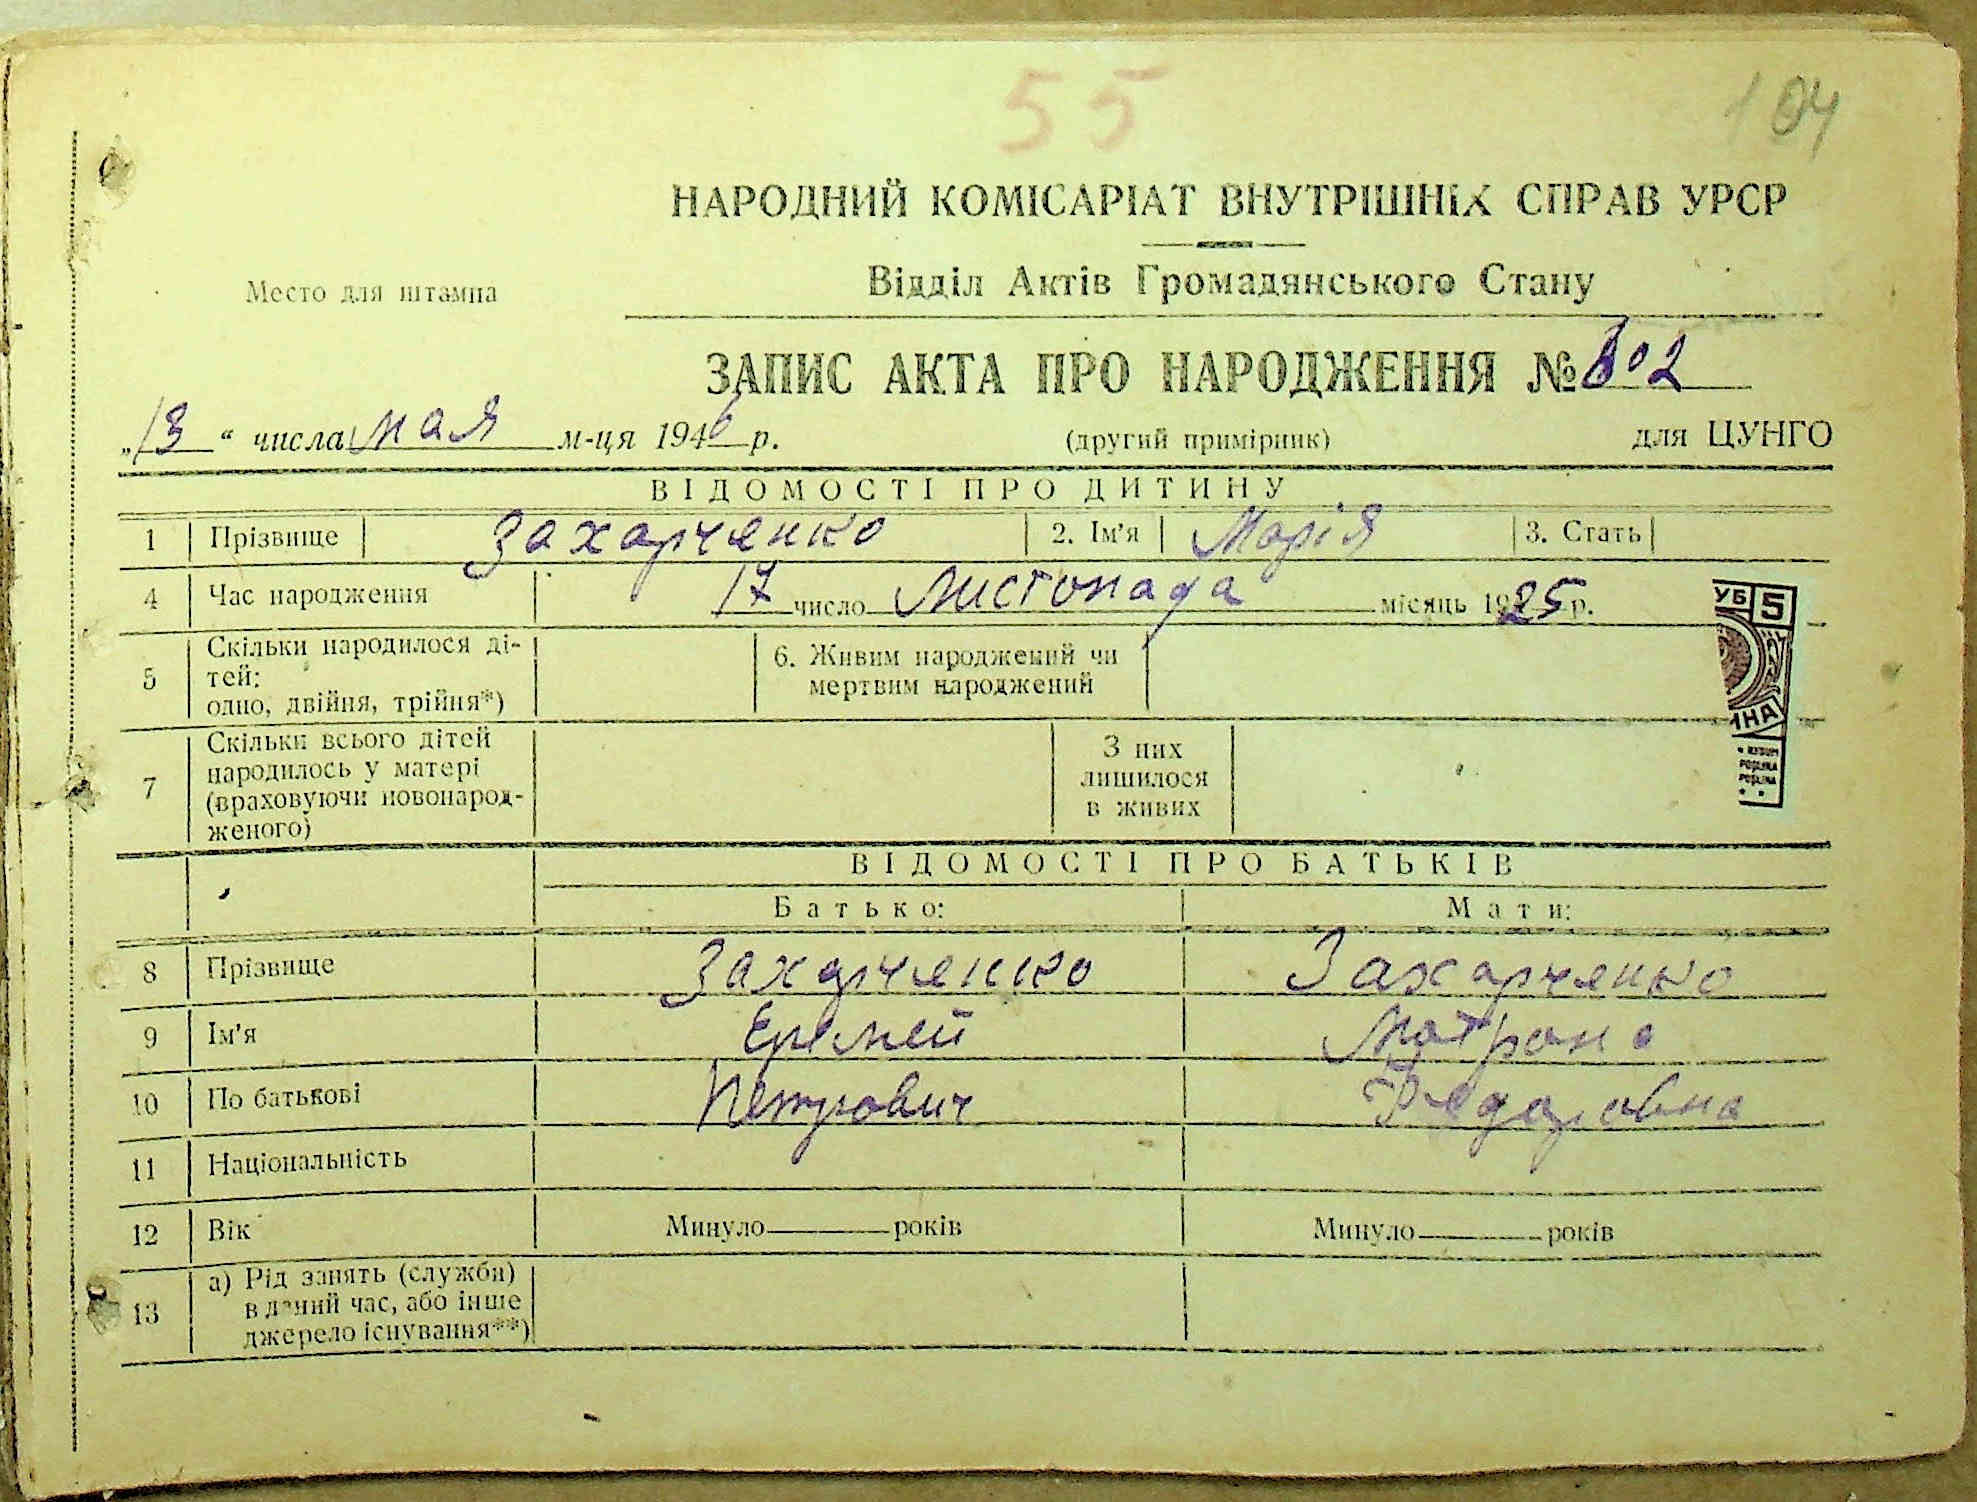 55
104
НАРОДНИЙ КОМІСАРІАТ ВНУТРІШНІХ СПРАВ УРСР
Место для штампа
Відділ Актів Громадянського Стану
ЗАПИС АКТА ПРО НАРОДЖЕННЯ № 602
„13“ числа мая м-ця 1946 р. (другий примірник) для ЦУНГО
ВІДОМОСТІ ПРО ДИТИНУ
1 Прізвище Захарченко 2. Ім'я Марія 3. Стать
4 Час народження 17 число Листопада місяць 1925 р.
УБ 5
5 Скільки народилося ді-
тей:
одно, двійня, трійня*)
6. Живим народжений чи
мертвим народжений
ИНА
7 Скільки всього дітей
народилось у матері
(враховуючи новонарод-
женого)
З них
лишилося
в живих
ВІДОМОСТІ ПРО БАТЬКІВ
Батько: Мати:
8 Прізвище Захарченко Захарченко
9 Ім'я Еремей Мотрона
10 По батькові Петрович Федоровна
11 Національність
12 Вік Минуло років Минуло років
13 а) Рід занять (служби)
в даний час, або інше
джерело існування**)